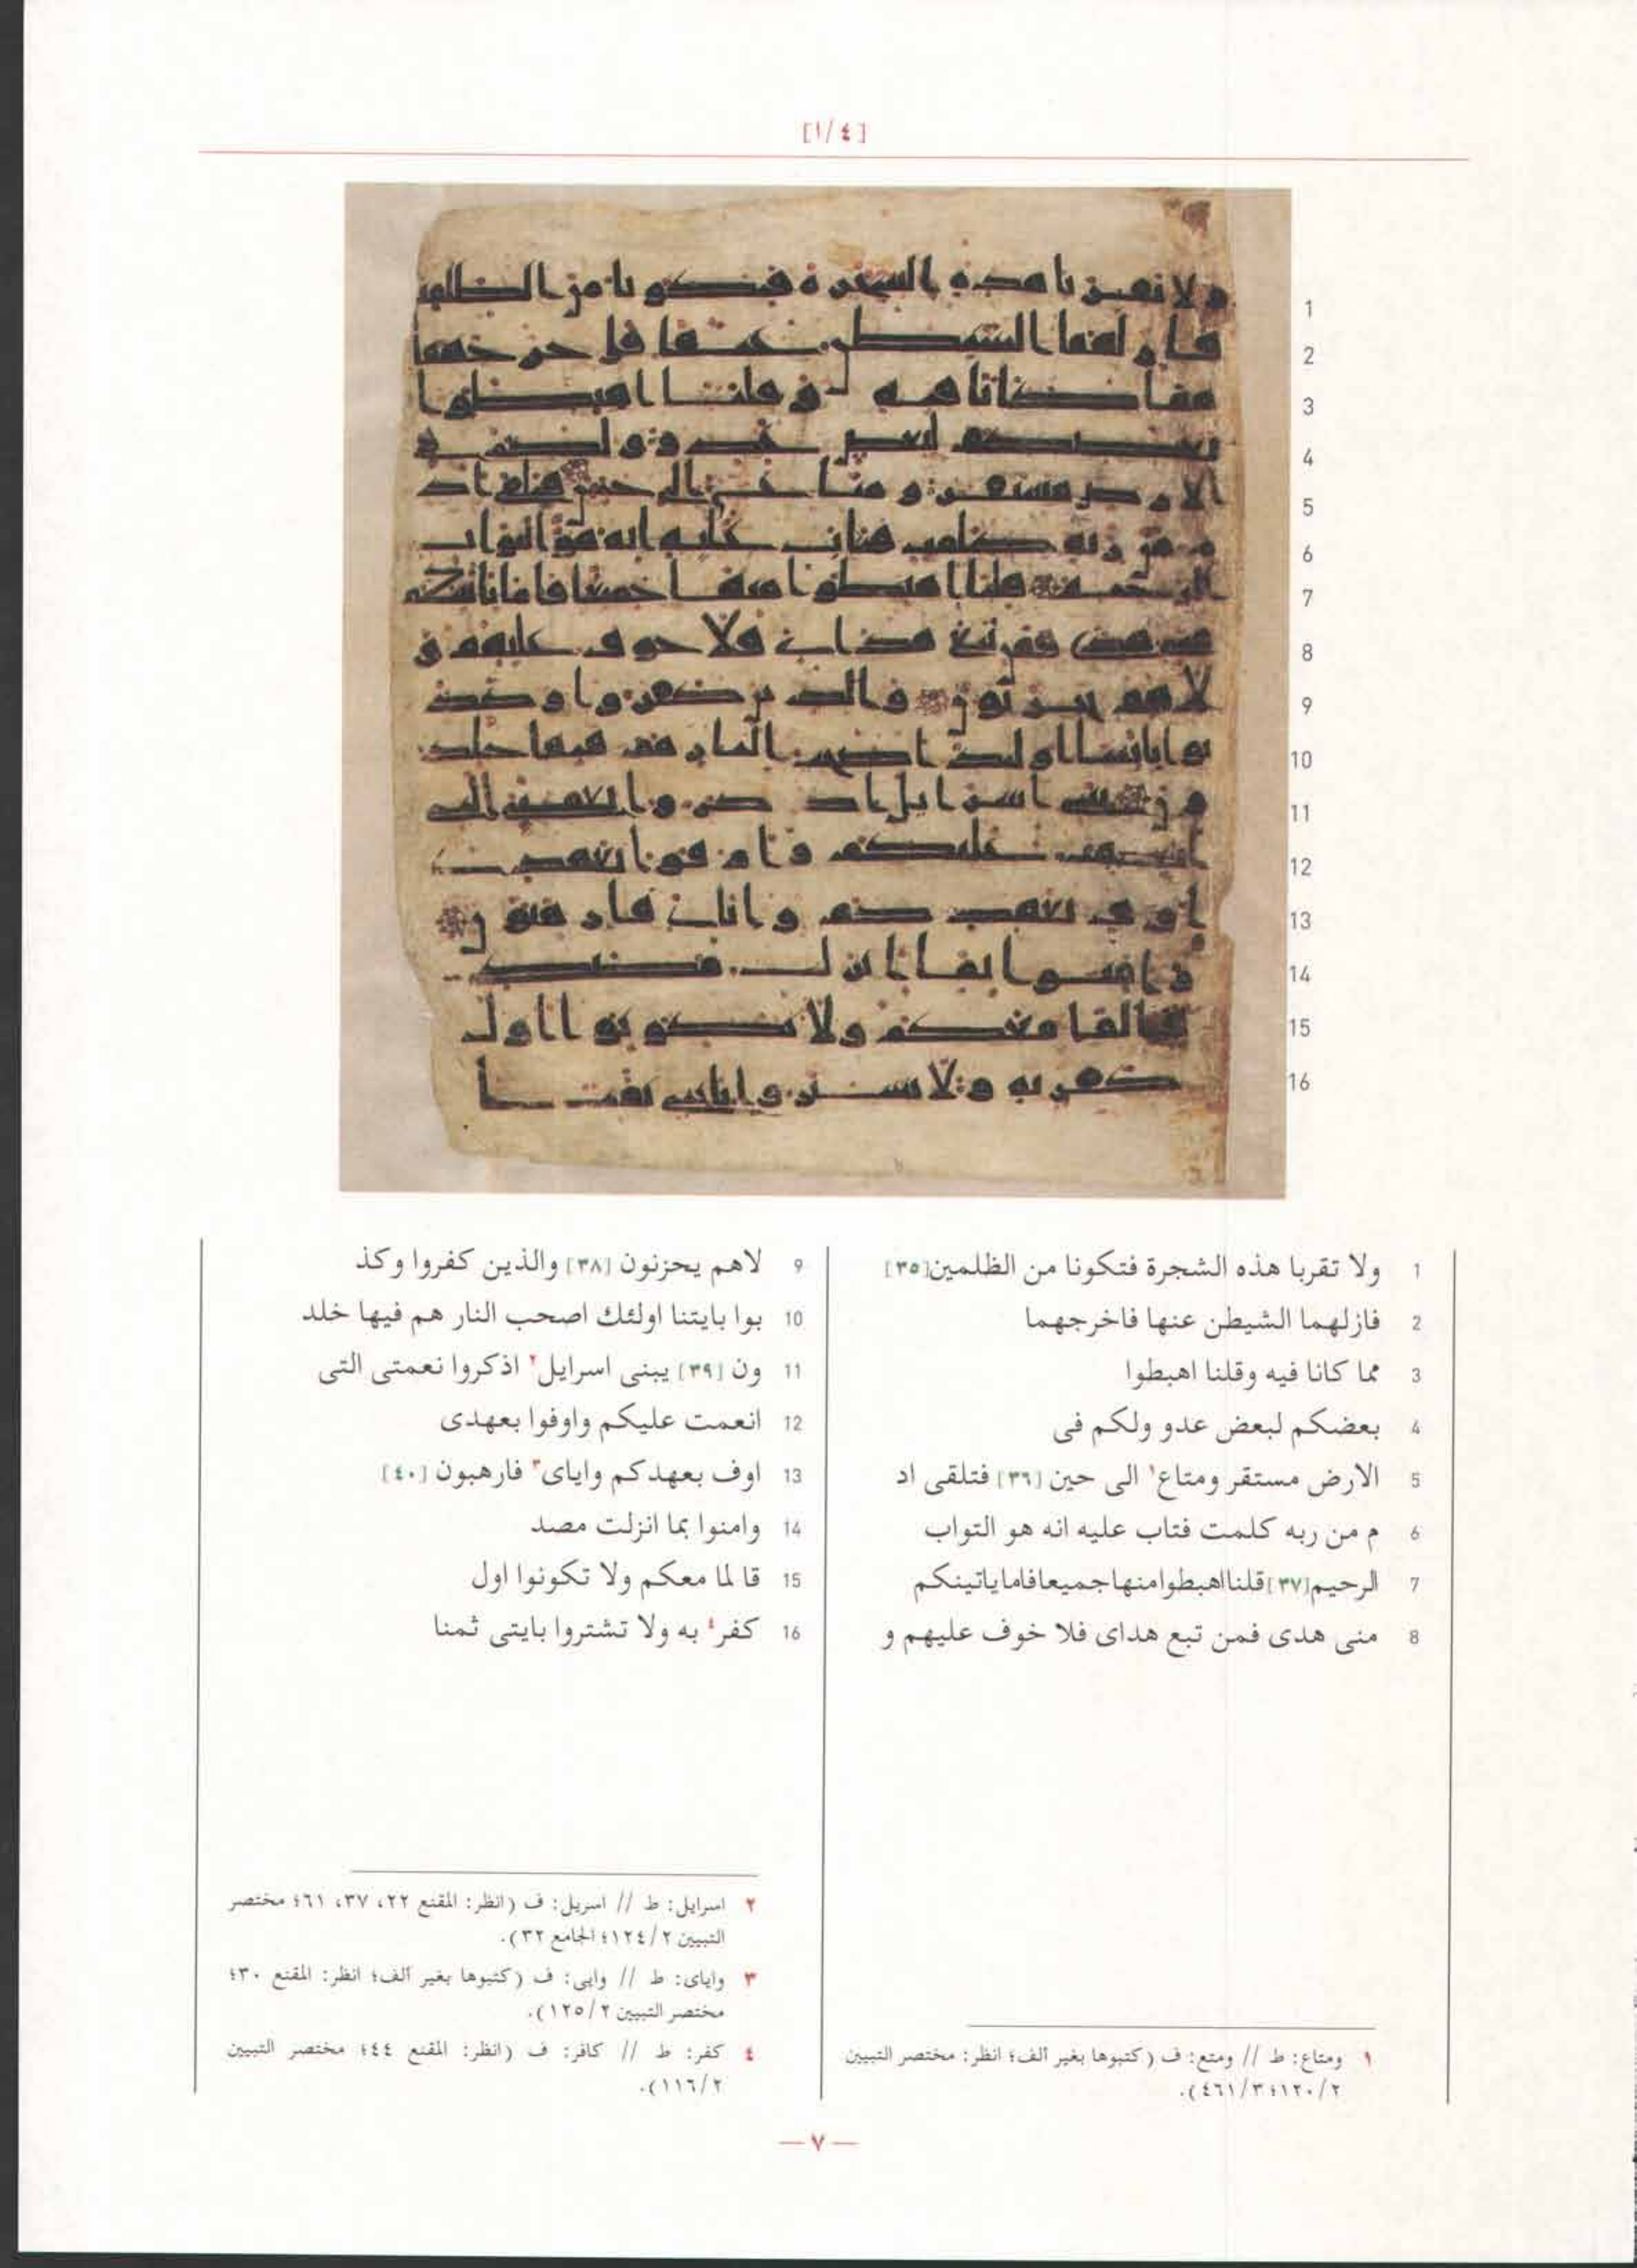 [٤/١]
1 ولا تقربا هذه الشجرة فتكونا من الظلمين [٣٥]
2 فازلهما الشيطن عنها فاخرجهما
3 مما كانا فيه وقلنا اهبطوا
4 بعضكم لبعض عدو ولكم فى
5 الارض مستقر ومتاع١ الى حين [٣٦] فتلقى اد
6 م من ربه كلمت فتاب عليه انه هو التواب
7 الرحيم [٣٧] قلنا اهبطوا منها جميعا فاما ياتينكم
8 منى هدى فمن تبع هداى فلا خوف عليهم و
9 لاهم يحزنون [٣٨] والذين كفروا وكذ
10 بوا بايتنا اولئك اصحب النار هم فيها خلد
11 ون [٣٩] يبنى اسرايل٢ اذكروا نعمتى التى
12 انعمت عليكم واوفوا بعهدى
13 اوف بعهدكم واياى٣ فارهبون [٤٠]
14 وامنوا بما انزلت مصد
15 قا لما معكم ولا تكونوا اول
16 كفر٤ به ولا تشتروا بايتى ثمنا
١ ومتاع: ط // ومتع: ف (كتبوها بغير ألف؛ انظر: مختصر التبيين
٢/١٢٠؛ ٣/٤٦١).
٢ اسرايل: ط // اسريل: ف (انظر: المقنع ٢٢، ٣٧، ٦١؛ مختصر
التبيين ٢/١٢٤؛ الجامع ٣٢).
٣ واياى: ط // وايى: ف (كتبوها بغير ألف؛ انظر: المقنع ٣٠؛
مختصر التبيين ٢/١٢٥).
٤ كفر: ط // كافر: ف (انظر: المقنع ٤٤؛ مختصر التبيين
٢/١١٦).
— ٧ —